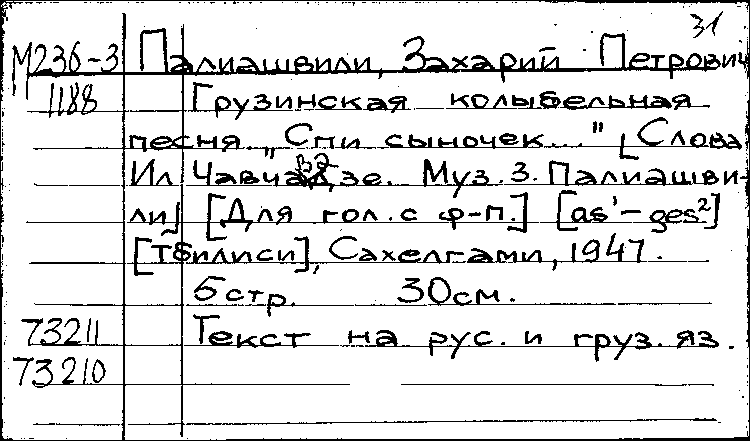 31
М236-3 Палиашвили, Захарий Петрович
1188 Грузинская колыбельная
песня „Спи сыночек..." [Слова
Ил Чавчавадзе. Муз. З. Палиашви-
ли] [Для гол. с ф-п.] [as¹-ges²]
[Тбилиси], Сахелгами, 1947.
5 стр. 30 см.
73211 Текст на рус. и груз. яз.
73210